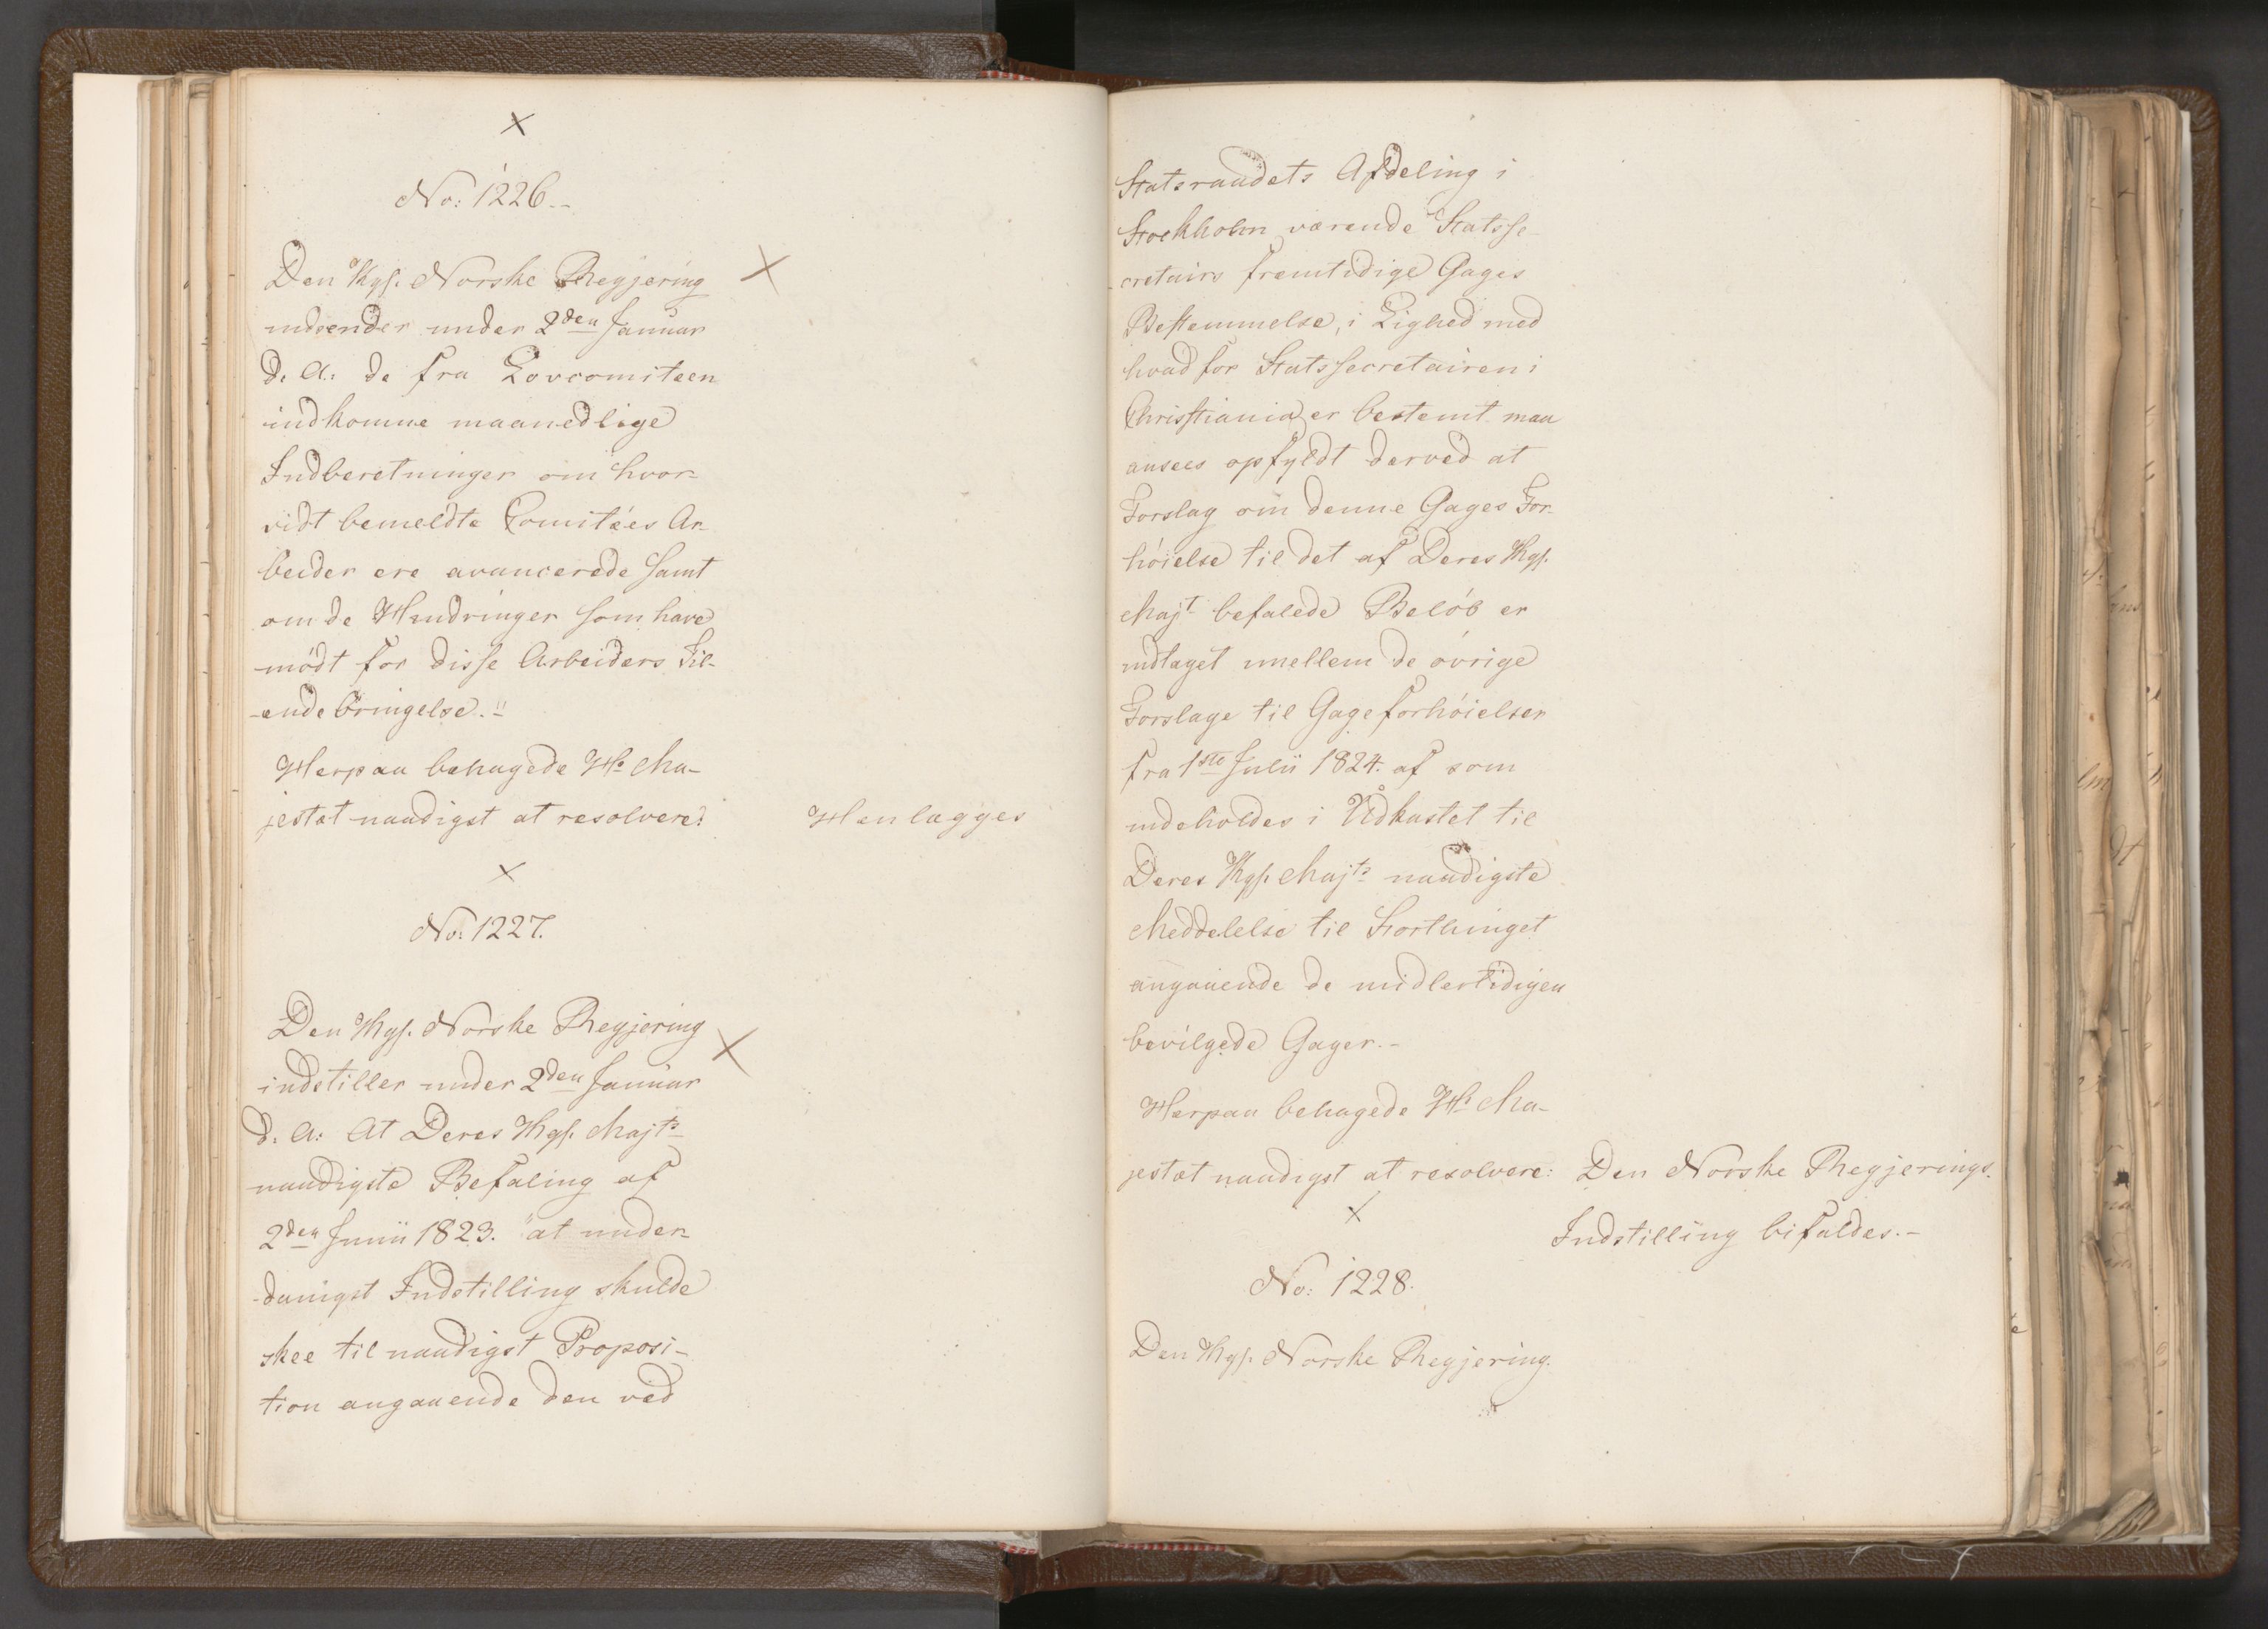 No: 1226.
Den Kgl. Norske Regjering
indsender under 2den Januar
d. A: de fra Lovcomiteen
indkomne maanedlige
Indberetninger om hvor-
vidt bemeldte Comitées Ar-
beider ere avancerede samt
om de Hindringer som have
mödt for disse Arbeiders Til-
-endebringelse."
Herpaa behagede Hs Ma-
jestæt naadigst at resolvere:
Henlægges
No: 1227.
Den Kgl. Norske Regjering
indstiller under 2den Januar
d. A: At Deres Kgl. Majts
naadigste Befaling af
2den Junii 1823. "at under-
-danigst Indstilling skulde
skee til naadigst Proposi-
tion angaaende den ved
Statsraadets Afdeling i
Stockholm værende Statsse-
-cretairs fremtidige Gages
Bestemmelse, i Lighed med
hvad for Statssecretairen i
Christiania er bestemt maa
ansees opfyldt derved at
Forslag om denne Gages For-
höielse til det af Deres Kgl.
Majt befalede Belöb er
indtaget imellem de övrige
Forslage til Gageforhöielser
fra 1ste Julii 1824. af som
indeholdes i Udkastet til
Deres Kgl. Majts naadigste
Meddelelse til Storthinget
angaaende de midlertidigen
bevilgede Gager.-
Herpaa behagede Hs Ma-
jestæt naadigst at resolvere:
Den Norske Regjerings
Indstilling bifaldes.-
No: 1228.
Den Kgl. Norske Regjering